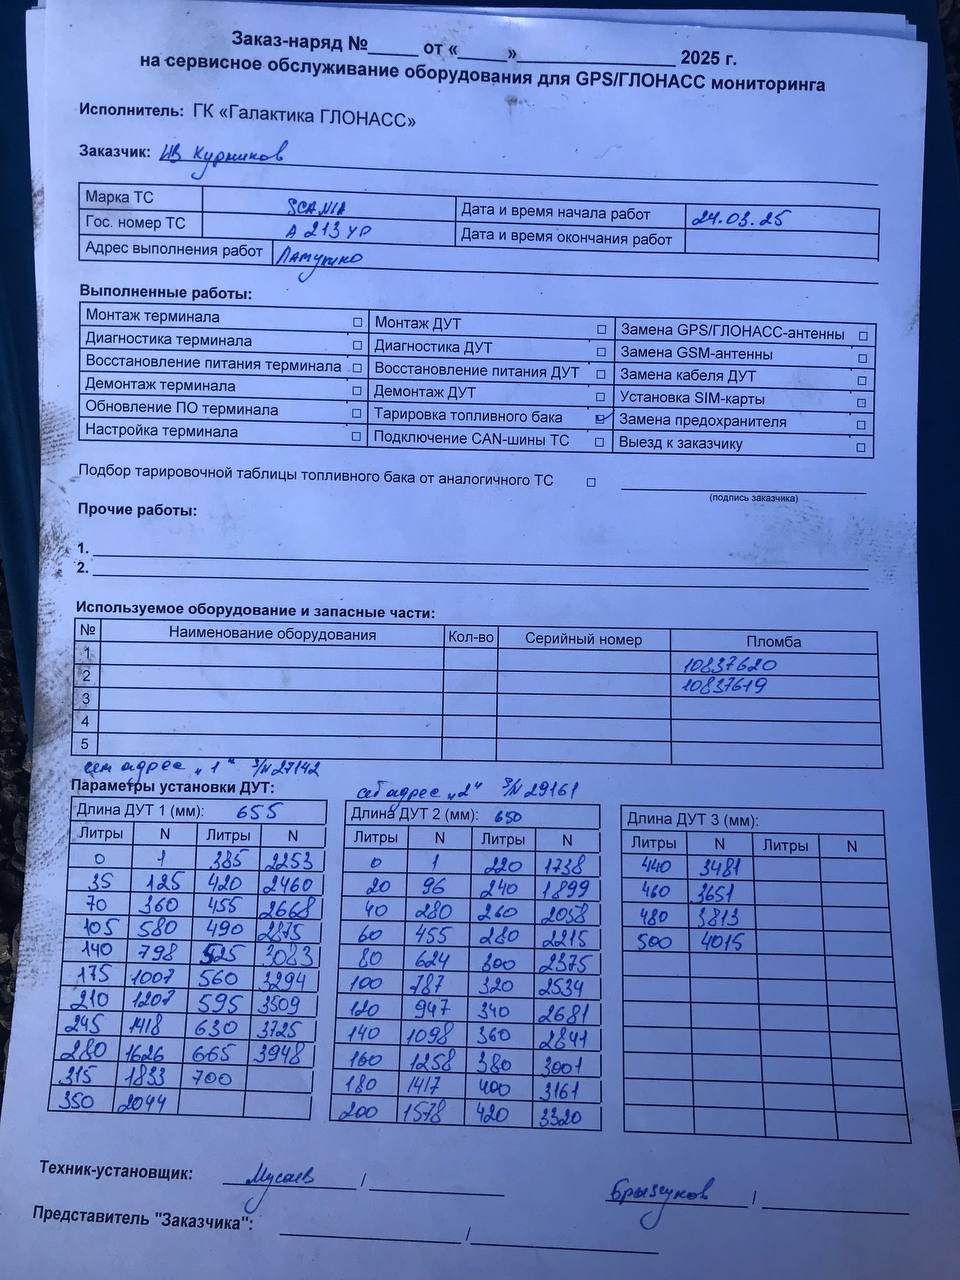 Заказ-наряд №_____ от «_____»________________ 2025 г.
на сервисное обслуживание оборудования для GPS/ГЛОНАСС мониторинга
Исполнитель: ГК «Галактика ГЛОНАСС»
Заказчик: ИВ Курников
Марка ТС SCANIA Дата и время начала работ 24.03.25
Гос. номер ТС А 213 УР Дата и время окончания работ
Адрес выполнения работ
Выполненные работы:
Монтаж терминала □ Монтаж ДУТ □ Замена GPS/ГЛОНАСС-антенны □
Диагностика терминала □ Диагностика ДУТ □ Замена GSM-антенны □
Восстановление питания терминала □ Восстановление питания ДУТ □ Замена кабеля ДУТ □
Демонтаж терминала □ Демонтаж ДУТ □ Установка SIM-карты □
Обновление ПО терминала □ Тарировка топливного бака ☑ Замена предохранителя □
Настройка терминала □ Подключение CAN-шины ТС □ Выезд к заказчику □
Подбор тарировочной таблицы топливного бака от аналогичного ТС □
(подпись заказчика)
Прочие работы:
1.
2.
Используемое оборудование и запасные части:
№ Наименование оборудования Кол-во Серийный номер Пломба
1 10837620
2 10837619
3
4
5
сет адрес „1“ З/N 27142
сет адрес „2“ З/N 29161
Параметры установки ДУТ:
Длина ДУТ 1 (мм): 655
Литры N Литры N
0 1 385 2253
35 125 420 2460
70 360 455 2668
105 580 490 2875
140 798 525 3083
175 1007 560 3294
210 1207 595 3509
245 1418 630 3725
280 1626 665 3948
315 1833 700
350 2044
Длина ДУТ 2 (мм): 650
Литры N Литры N
0 1 220 1738
20 96 240 1899
40 280 260 2058
60 455 280 2215
80 624 300 2375
100 787 320 2534
120 947 340 2681
140 1098 360 2841
160 1258 380 3001
180 1417 400 3161
200 1578 420 3320
Длина ДУТ 3 (мм):
Литры N Литры N
440 3481
460 3651
480 3813
500 4015
Техник-установщик: Мусаев / Брызгунов /
Представитель "Заказчика": /